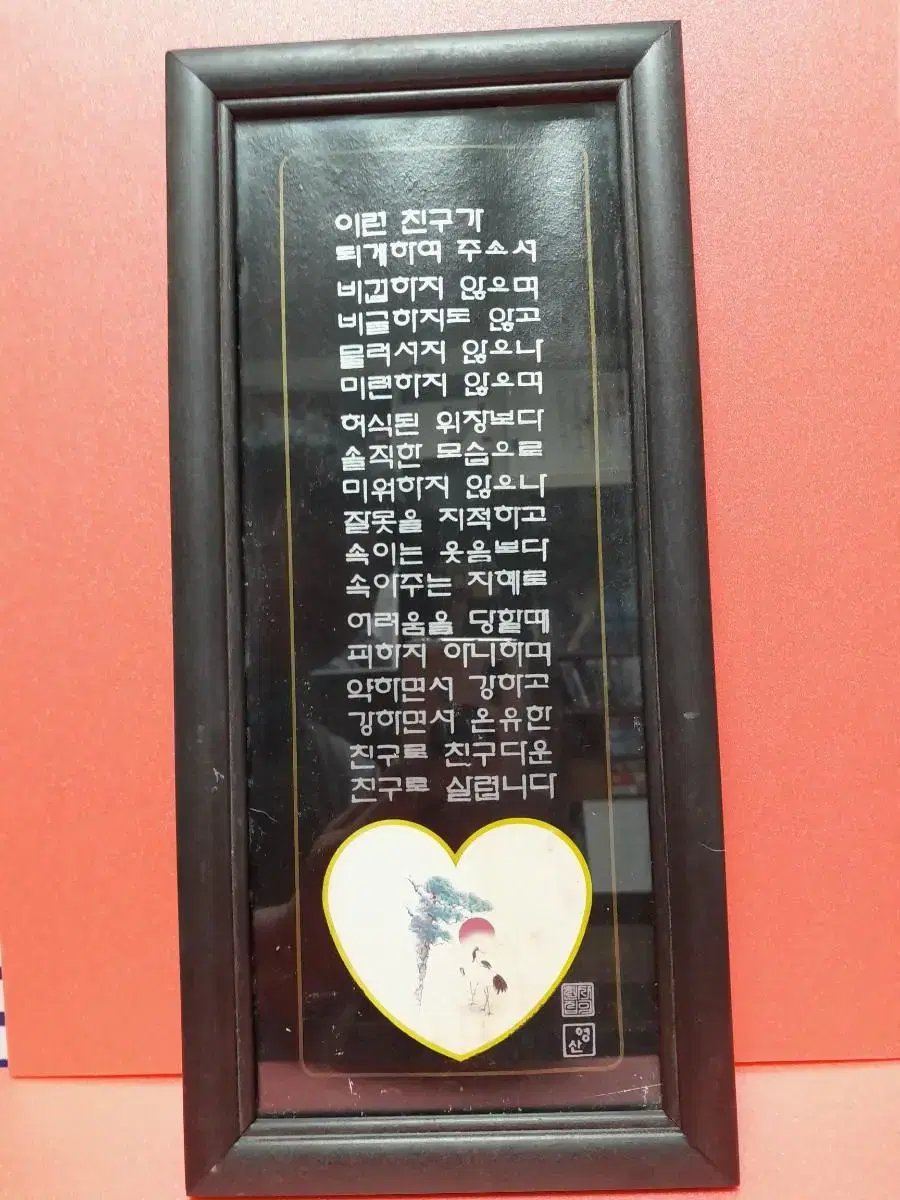 이런 친구가
되게하여 주소서
비겁하지 않으며
비굴하지도 않고
물러서지 않으나
미련하지 않으며
허식된 위장보다
솔직한 모습으로
미워하지 않으나
잘못을 지적하고
속이는 웃음보다
속아주는 지혜로
어려움을 당할때
피하지 아니하며
약하면서 강하고
강하면서 온유한
친구로 친구다운
친구로 살렵니다
영산